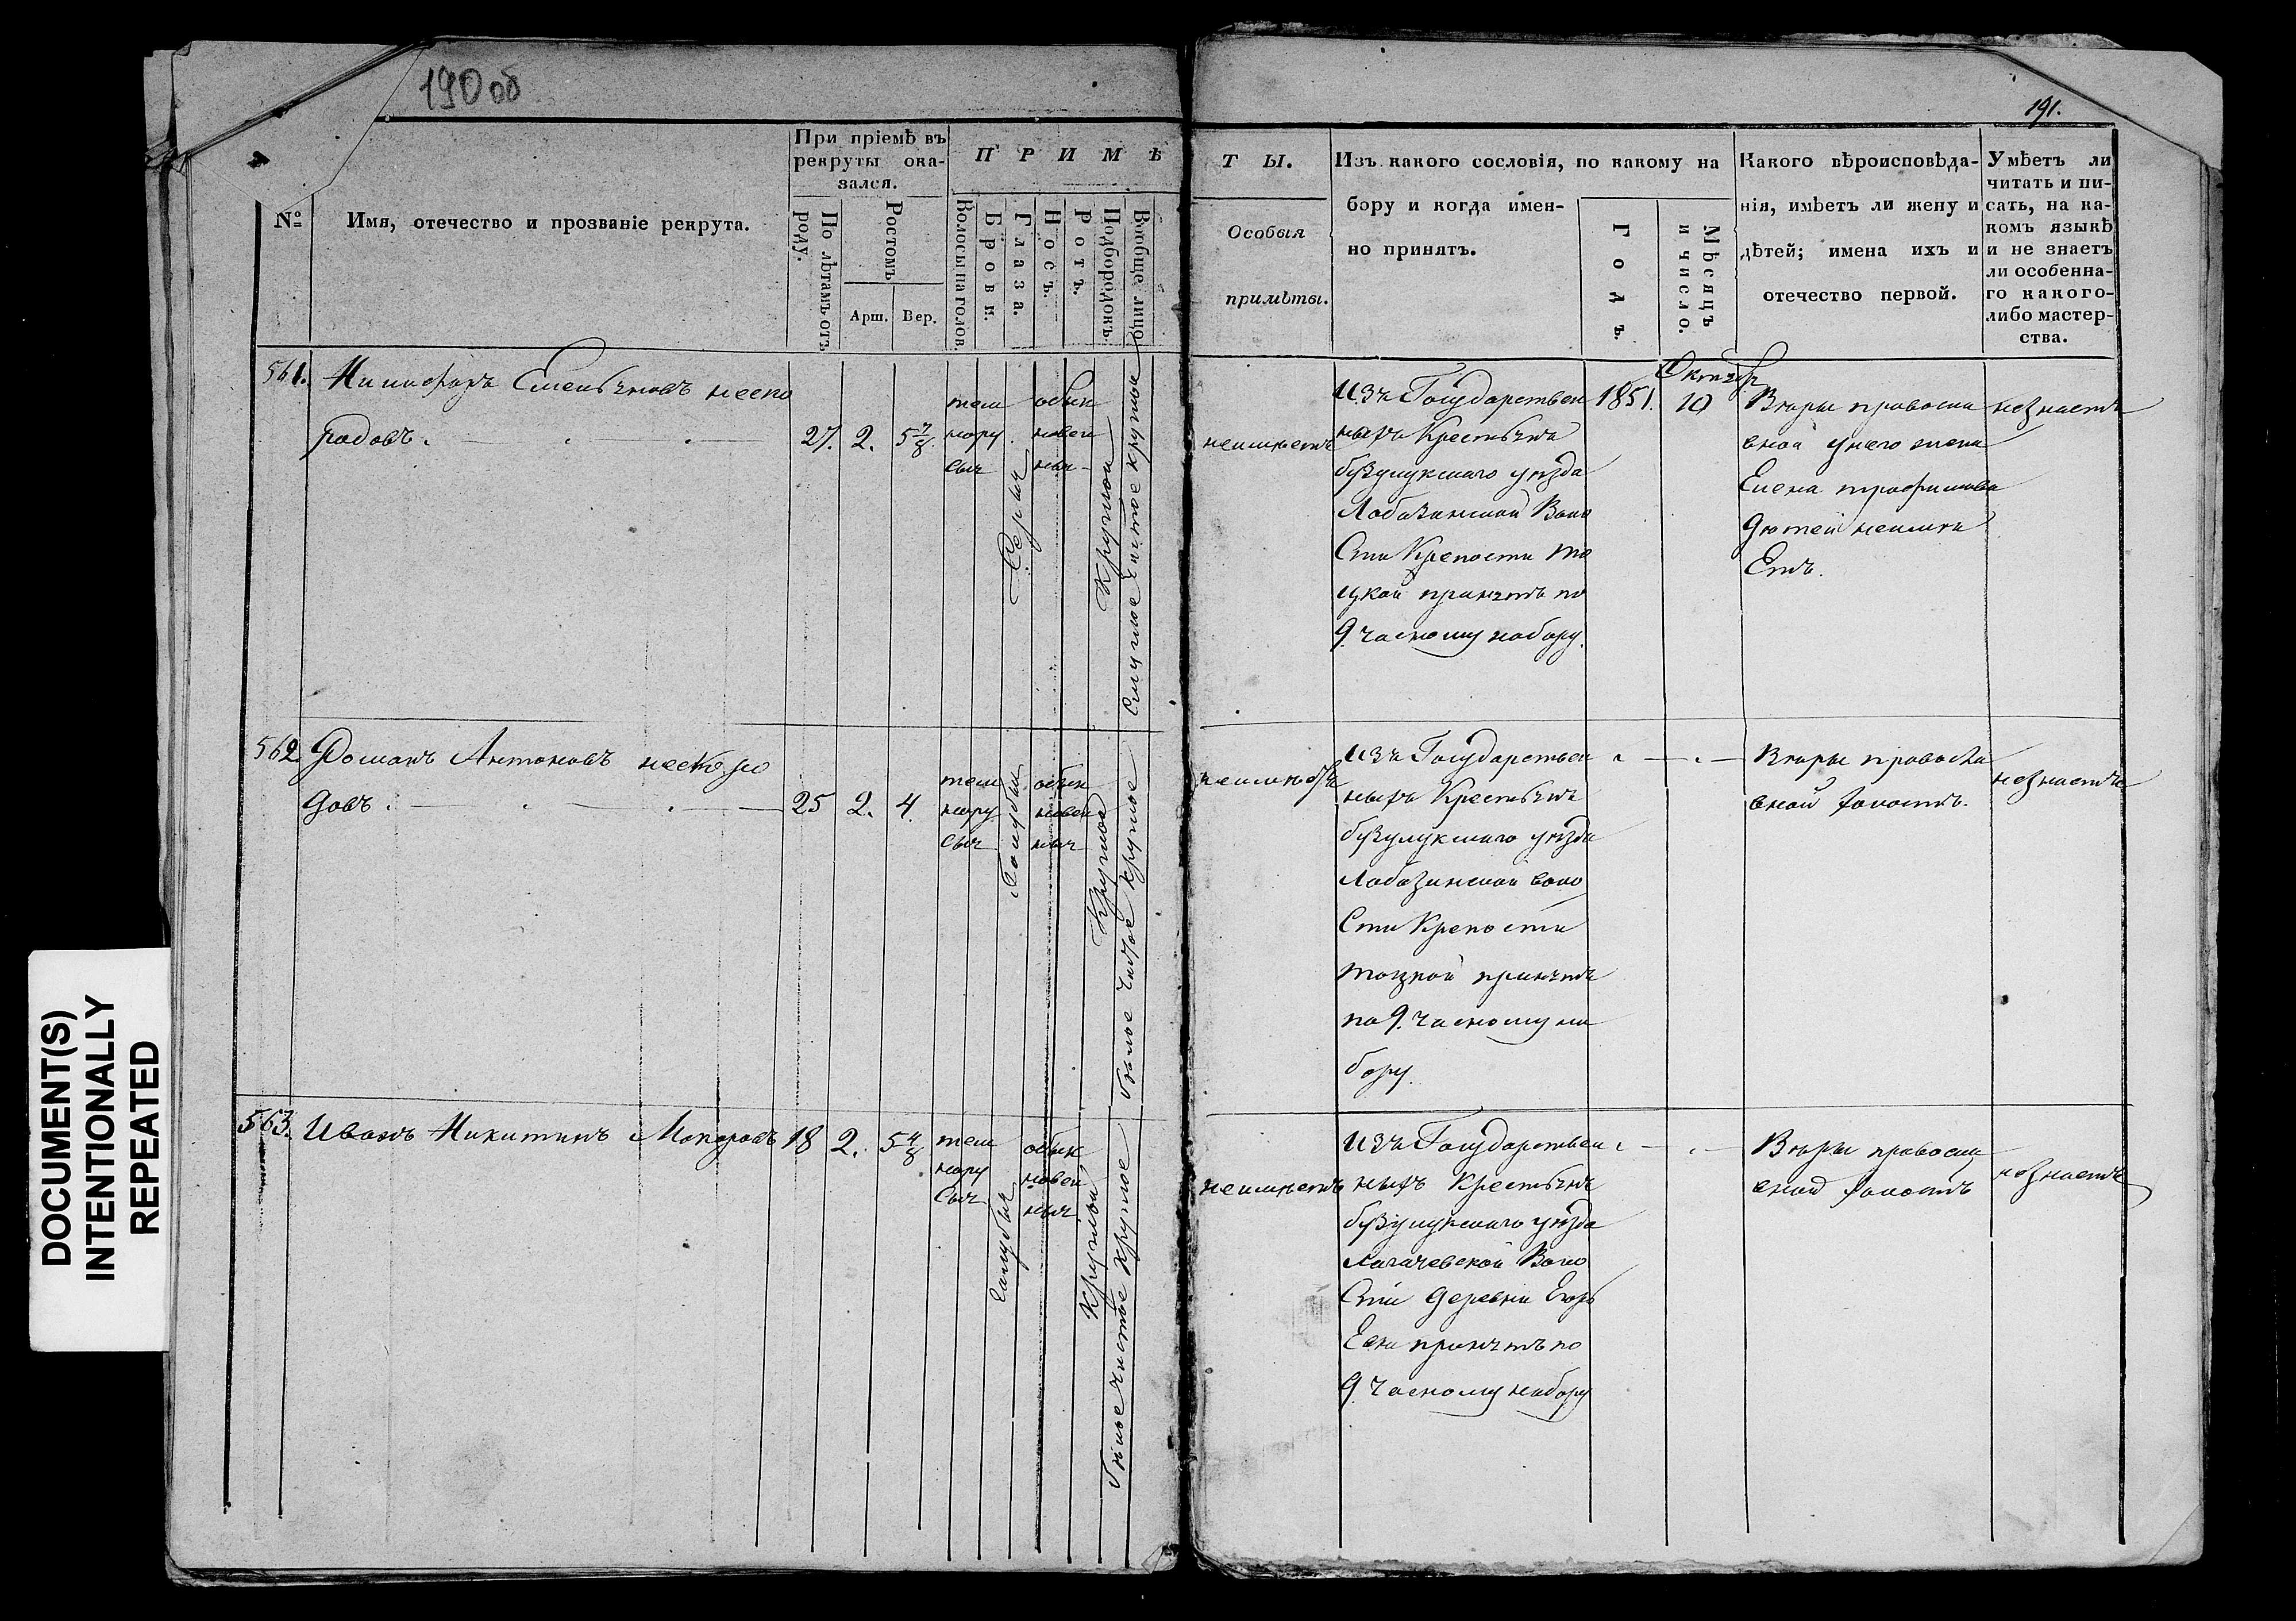 190 об
191.
DOCUMENT(S)
INTENTIONALLY
REPEATED
№
Имя, отечество и прозваніе рекрута.
При пріемѣ въ
рекруты ока-
зался.
По лѣтамъ отъ
роду.
Ростомъ
Арш.
Вер.
П Р И М Ѣ
Волосы на голов.
Брови.
Глаза.
Носъ.
Ротъ.
Подбородокъ.
Вообще лицо
Т Ы.
Особыя
примѣты.
Изъ какого сословія, по какому на
бору и когда имен-
но принятъ.
Годъ.
Мѣсяцъ
и число.
Какого вѣроисповѣда-
нія, имѣетъ ли жену и
дѣтей; имена ихъ и
отечество первой.
Умѣетъ ли
читать и пи-
сать, на ка-
комъ языкѣ
и не знаетъ
ли особенна-
го какого-
либо мастер-
ства.
561.
Емельяновъ неско
родовъ.
27. 2. 5 7/8.
тем
нору
сыя
Серыя
обык
новен
ныя
Круглой
Смуглое чистое круглое
неимѣетъ
Изъ Государствен
ныхъ Крестьянъ
бузулукскаго уѣзда
Лобазинской Воло
Сти Крепости то
цкой принятъ по
9. часному набору.
1851.
Октябр
10
Вѣры правосла
вной унего жена
Елена трофимова
дѣтей неимѣ
Етъ.
незнаетъ
562.
Романъ Антоновъ неско ро
довъ.
25 2. 4.
темн
нору
сыя
Голубыя
обык
новен
ныя
Круглой
белое чистое круглое
неимѣетъ
Изъ Государствен
ныхъ Крестьянъ
бузулукскаго уѣзда
Лобазинской воло
Сти Крепости
тоцкой принятъ
по 9. часному на
бору.
Вѣры правосла
вной холостъ.
незнаетъ
563.
Иванъ Никитинъ Мокровъ
18 2. 5 4/8
тем
нору
сыя
голубыя
обык
новен
ныя
круглой
белое чистое круглое
неимѣетъ
Изъ Государствен
ныхъ Крестьянъ
бузулукскаго уѣзда
Воло
Сти деревни Егорь
Евки принятъ по
9. часному набору
Вѣры правосла
вной холостъ
незнаетъ